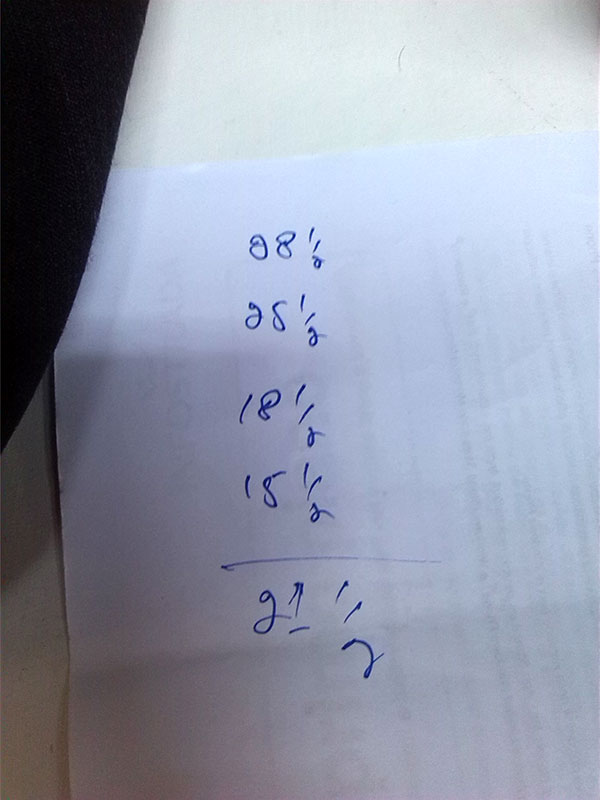 28 1/2
25 1/2
18 1/2
15 1/2
21 1/2